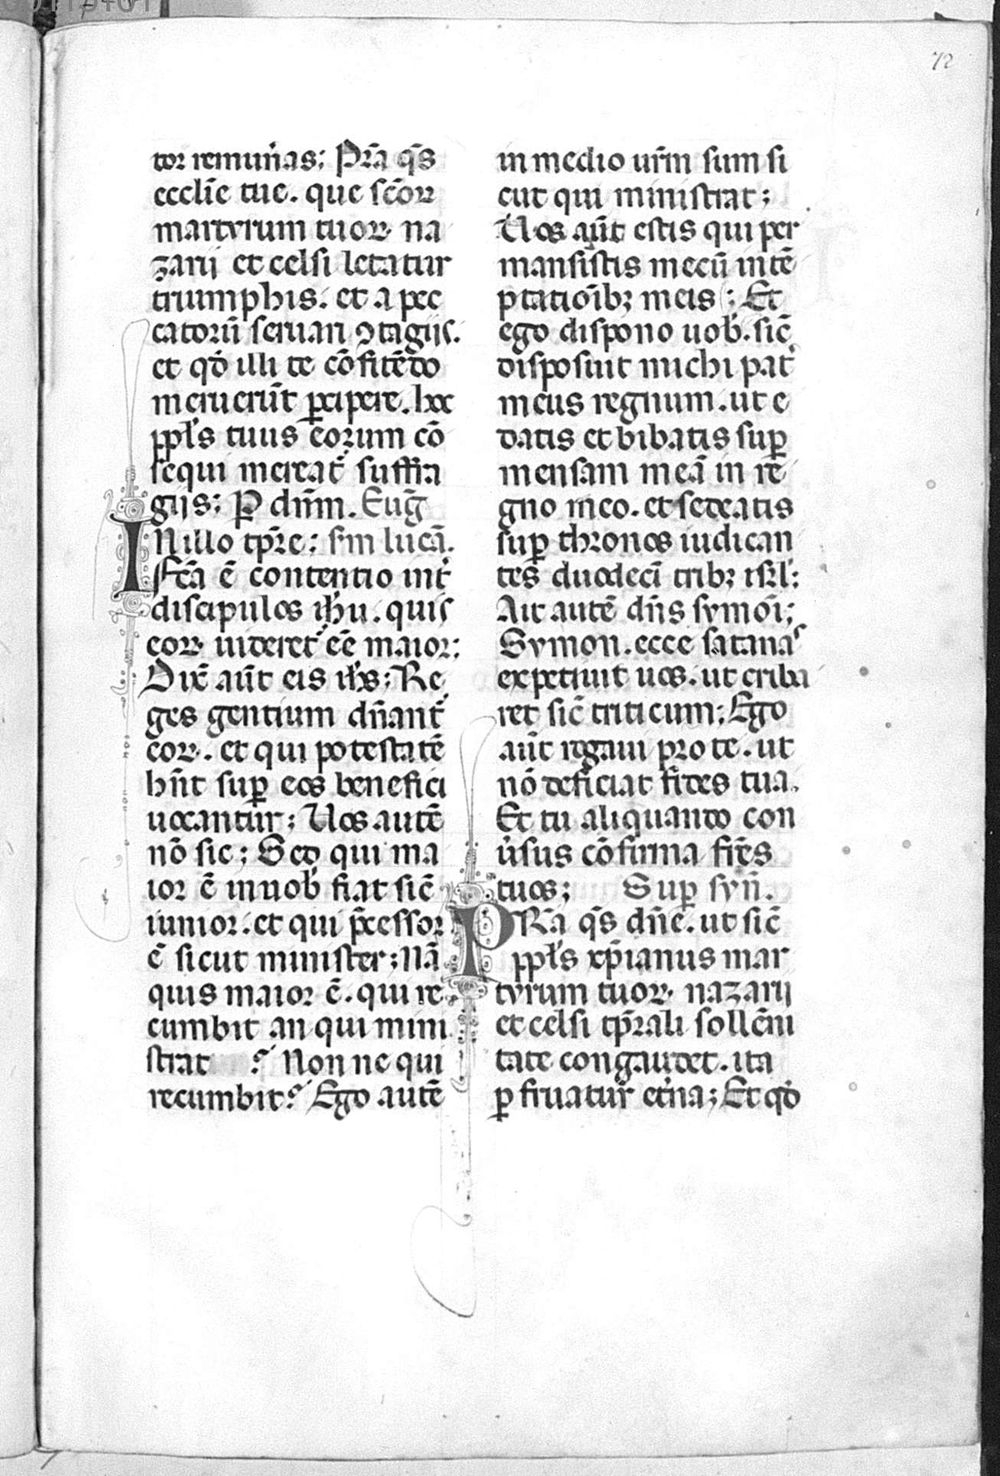 72
tor remun̄as; Pr̄a q̄s
eccl̄ie tue. que sc̄oꝝ
martyrum tuoꝝ na
zarij et celsi letatur
triumphis. et a pec
catorū seruari ꝯtagijs.
et qđ illi te cōfitēdo
meruerūt ꝑcipere. hoc
ppl̄s tuus eorum cō
sequi mereat᷑ suffra
gijs; P dn̄m. Euḡ
IN illo tp̄re; sm̄ lucā.
Fc̄a ē contentio int̄
discipulos ih̄u. quis
eoꝝ uideret᷑ ēe maior;
Dix̄ aūt eis ih̄s; Re
ges gentium dn̄ant᷑
eoꝝ. et qui potestatē
hn̄t suꝑ eos benefici
uocantur; Uos autē
nō sic; Sed qui ma
ior ē in uob̄ fiat sic̄
iunior. et qui p̄cessor
ē sicut minister; Nā
quis maior ē. qui re
cumbit an qui mini
strat ? Non ne qui
recumbit? Ego autē
in medio ur̄m sum si
cut qui ministrat;
Uos aūt estis qui per
mansistis mecū in tē
ptatiōibꝫ meis; Et
ego dispono uob̄. sic̄
disposuit michi pat᷑
meus regnum. ut e
datis et bibatis suꝑ
mensam meā in re
gno meo. et sedeatis
suꝑ thronos iudican
tes duodecī tribꝫ isr̄l;
Ait autē dn̄s symōi;
Symon. ecce satanas
expetiuit uos. ut criba
ret sic̄ triticum; Ego
aūt rogaui pro te. ut
nō deficiat fides tua.
Et tu aliquando con
u̾sus cōfirma fr̄es
tuos; Suꝑ syn̄.
PRa q̄s dn̄e. ut sic̄
ppl̄s xp̄ianus mar
tyrum tuoꝝ nazarij
et celsi tp̄rali sollēni
tate congaudet. ita
ꝑfruatur et̾na; Et qđ